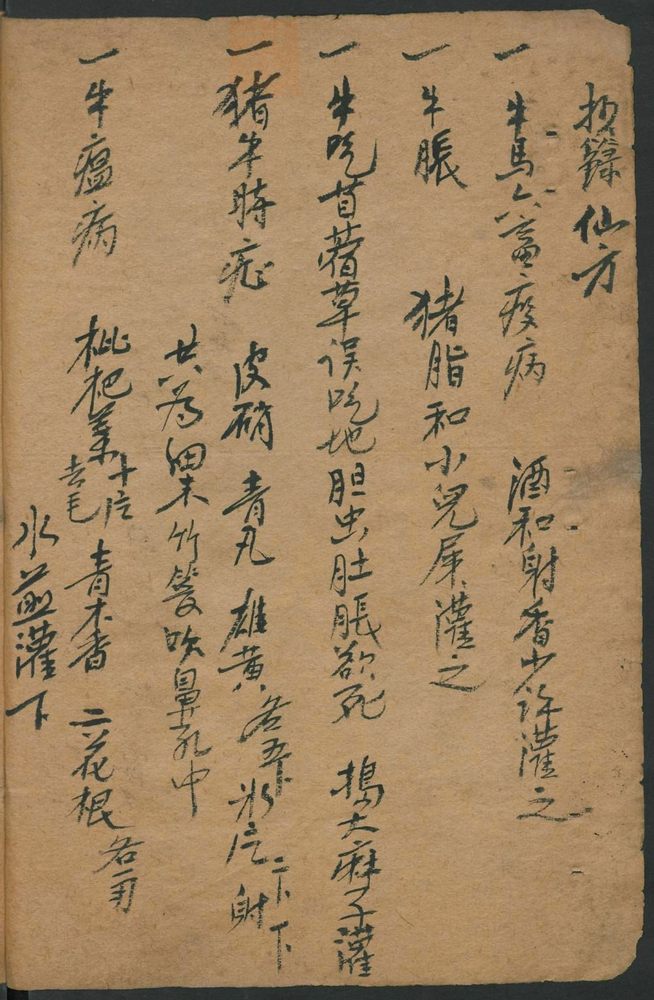 抄錄仙方
一牛馬六畜瘦病 酒和射香少許灌之
一牛脹 猪脂和小兒屎灌之
一牛吃苜蓿草误吃地胆虫肚脹欲死 搗大麻子灌
一猪牛時症 皮硝 青凡 雄黄各五卜 氷片二卜 射一卜
共為細末竹筒吹鼻孔中
一牛瘟病 枇杷葉十片去毛 青木香 二花根各一两
水煎灌下